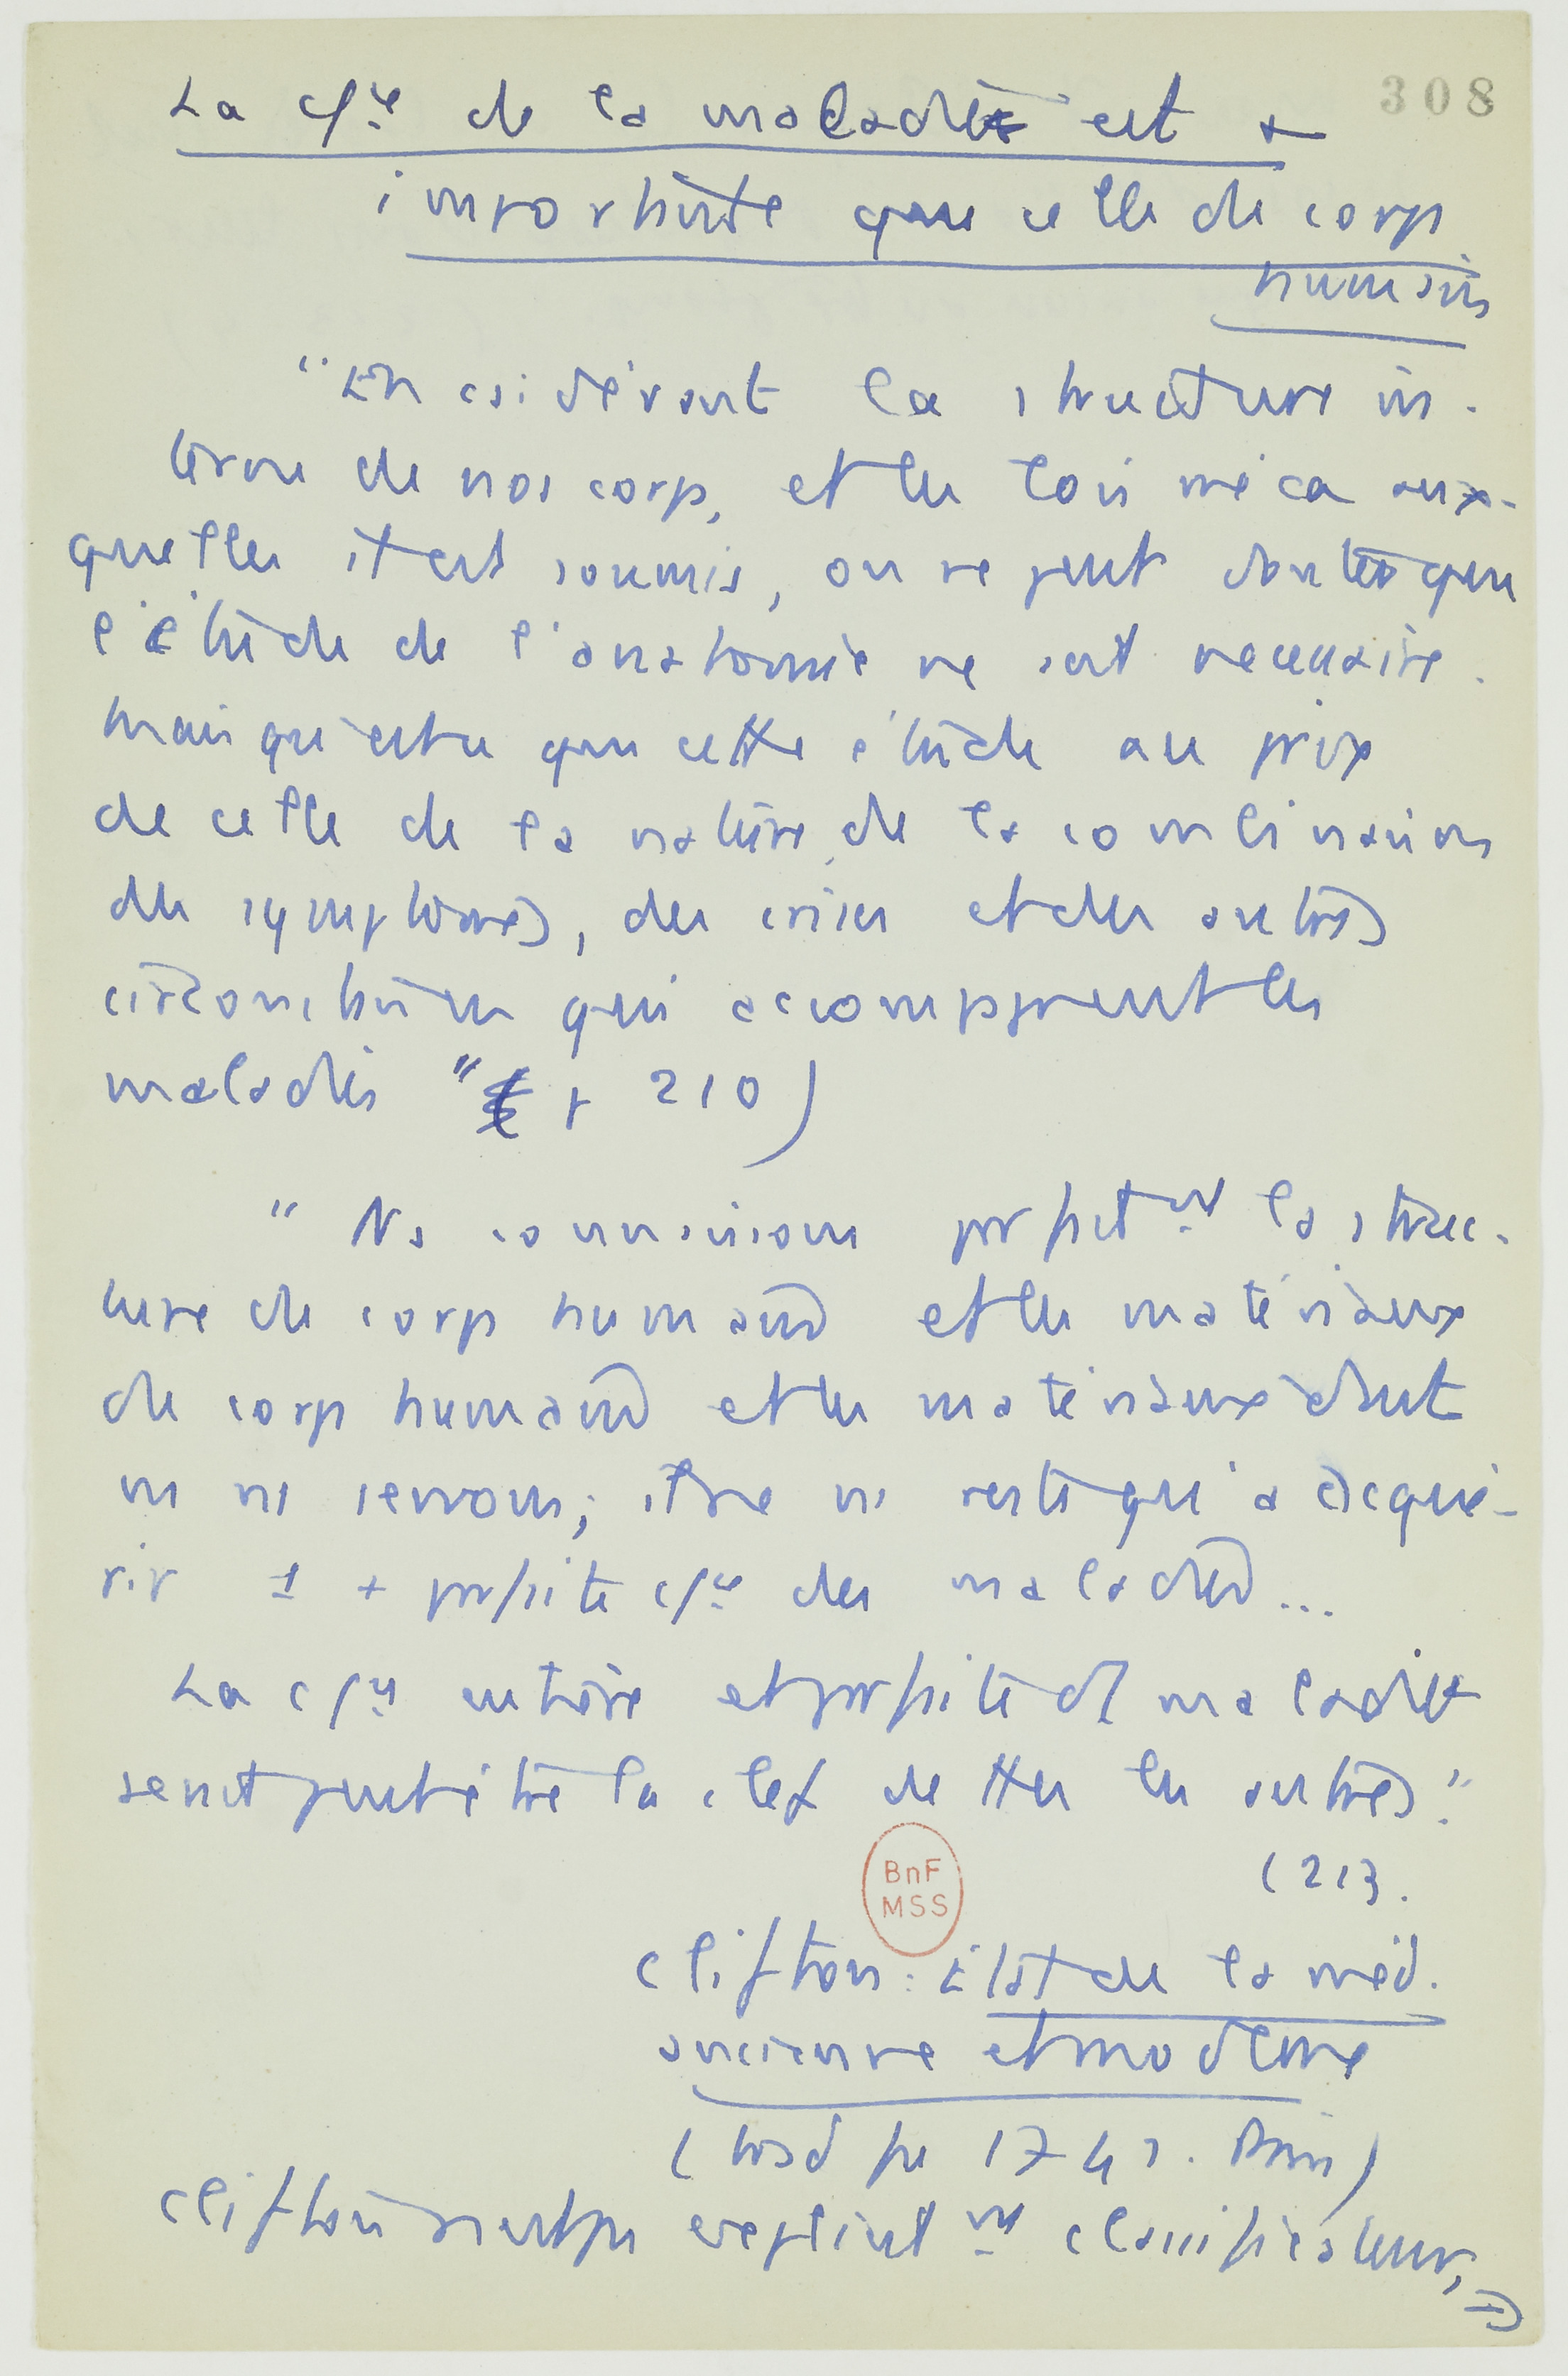 308
La cſce de la maladie est +
importante que celle du corps
humain
"En csidérant la structure in-
terne de nos corps, et les lois méca aux-
quelles il est soumis, on ne peut douter que
l'étude de l'anatomie ne soit necessaire.
Mais qu'est ce que cette étude au prix
de celle de la nature, de la combinaison
des symptomes, des crises et des autres
circonstances qui accompagnent les
maladies" p 210)
" Ns connaissons parfaitnt la struc-
ture du corps humain et les matériaux
du corps humain et les matériaux dont
ns ns servons; il ne ns reste qu'à acqué-
rir 1 + parfaite cſce des maladies...
La cſce entière et parfaite d'1 maladie
serait peut être la clef de ttes les autres."
(213.
Clifton: Etat de la méd.
ancienne et moderne
(trad fse 1742. Paris)
Clifton n'est pas explicitnt classificateur,